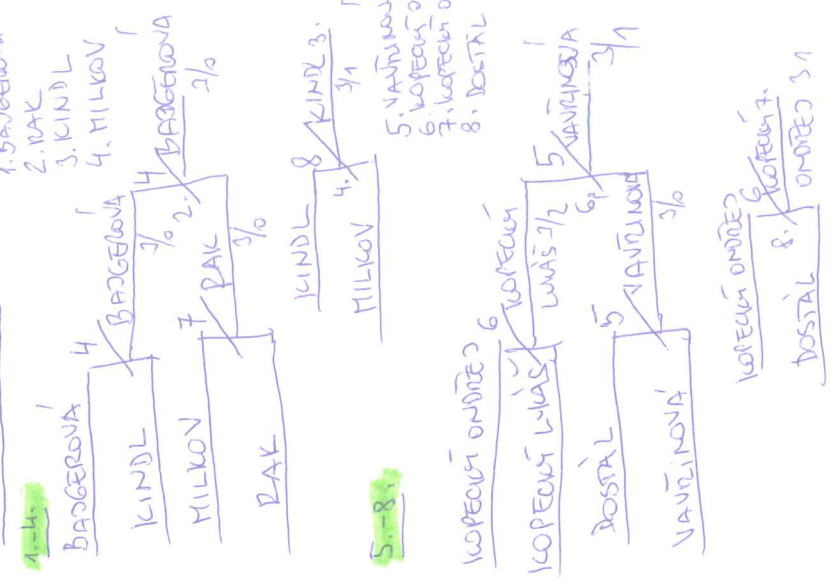 1.-4.
BAJGEROVÁ
KINDL
MILKOV
RAK
4
BAJGEROVÁ
3/0
7
RAK
3/0
4
2.
BAJGEROVÁ
3/0
1. BAJGEROVÁ
2. RAK
3. KINDL
4. MILKOV
KINDL
MILKOV
8
4.
KINDL 3.
3/1
5.-8.
KOPECKÝ ONDŘEJ
KOPECKÝ LUKÁŠ
DOSTÁL
VAVŘINOVÁ
6
KOPECKÝ
LUKÁŠ 3/2
5
VAVŘINOVÁ
3/0
5
6.
VAVŘINOVÁ
3/1
5. VAVŘINOV
6. KOPECKÝ
7. KOPECKÝ O
8. DOSTÁL
KOPECKÝ ONDŘEJ
DOSTÁL
6
8.
KOPECKÝ 7.
ONDŘEJ 31